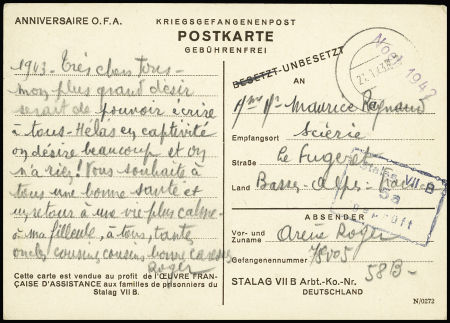 ANNIVERSAIRE O.F.A.
KRIEGSGEFANGENENPOST
POSTKARTE
GEBÜHRENFREI
Noël 1942
BESETZT-UNBESETZT
AN
1943 - Très chers tous -
mon plus grand désir
serait de pouvoir écrire
à tous - Hélas en captivité
on désire beaucoup et on
n'a rien! Vous souhaite à
tous une bonne santé et
un retour à une vie plus calme
à ma filleule, à tous, tantes
oncles cousins cousins bonne caresses
Roger
Cette carte est vendue au profit de l'ŒUVRE FRAN-
ÇAISE D'ASSISTANCE aux familles de prisonniers du
Stalag VII B.
Maurice Reynaud
Empfangsort Scierie
Straße Le Fugeret
Land Basses-Alpes
Stalag VII B
5a
geprüft
ABSENDER
Vor- und
Zuname Roger
Gefangenennummer 78005
58B-
STALAG VII B Arbt.-Ko.-Nr.
DEUTSCHLAND
N/0272